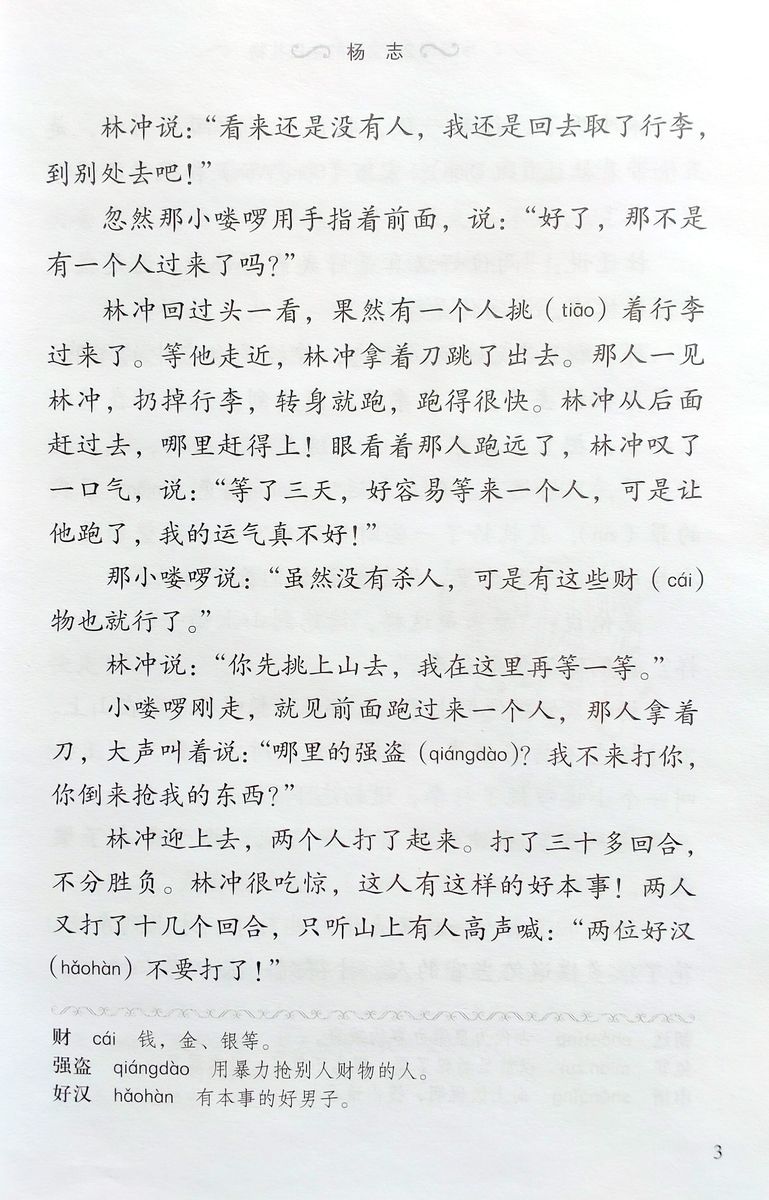 杨 志
林冲说：“看来还是没有人，我还是回去取了行李，
到别处去吧！”
忽然那小喽啰用手指着前面，说：“好了，那不是
有一个人过来了吗？”
林冲回过头一看，果然有一个人挑（tiāo）着行李
过来了。等他走近，林冲拿着刀跳了出去。那人一见
林冲，扔掉行李，转身就跑，跑得很快。林冲从后面
赶过去，哪里赶得上！眼看着那人跑远了，林冲叹了
一口气，说：“等了三天，好容易等来一个人，可是让
他跑了，我的运气真不好！”
那小喽啰说：“虽然没有杀人，可是有这些财（cái）
物也就行了。”
林冲说：“你先挑上山去，我在这里再等一等。”
小喽啰刚走，就见前面跑过来一个人，那人拿着
刀，大声叫着说：“哪里的强盗（qiángdào）？我不来打你，
你倒来抢我的东西？”
林冲迎上去，两个人打了起来。打了三十多回合，
不分胜负。林冲很吃惊，这人有这样的好本事！两人
又打了十几个回合，只听山上有人高声喊：“两位好汉
（hǎohàn）不要打了！”
财 cái 钱，金、银等。
强盗 qiángdào 用暴力抢别人财物的人。
好汉 hǎohàn 有本事的好男子。
3